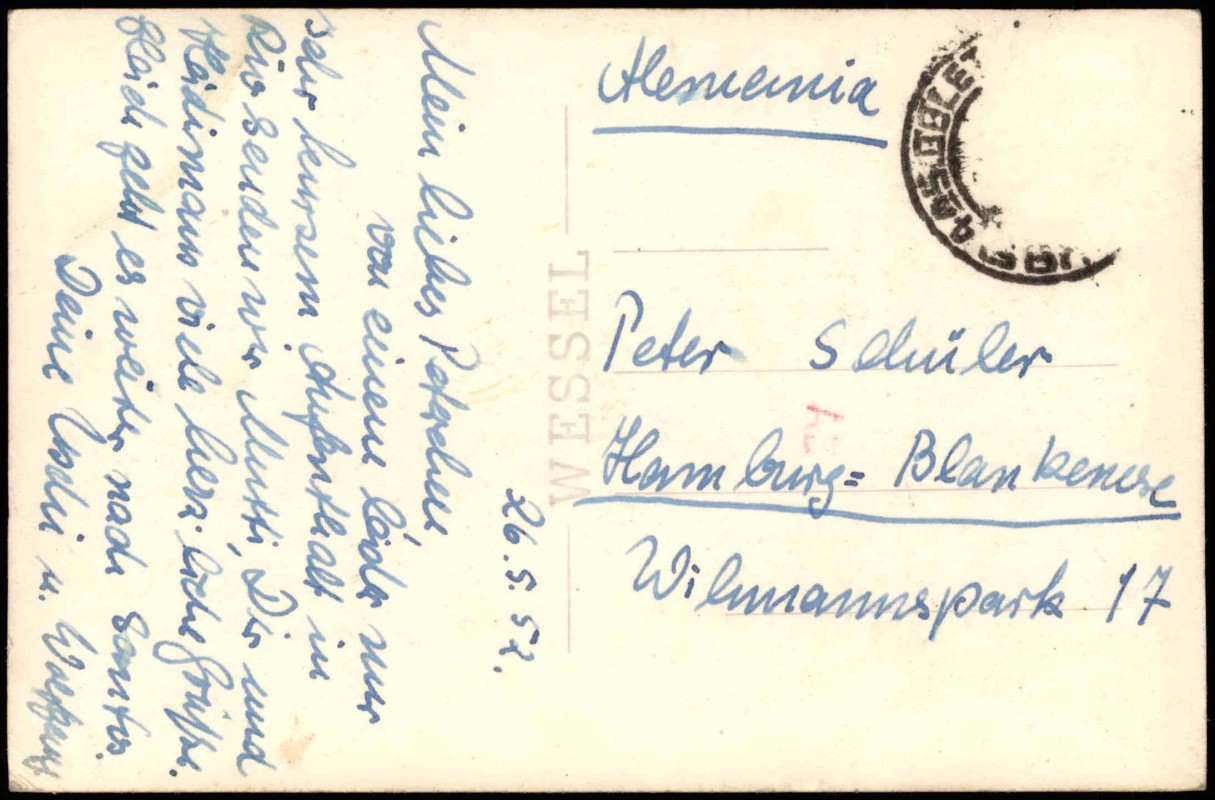 26.5.52.
Mein liebes Peterchen,
von einem leider nur
sehr kurzem Aufenthalt in
Rio senden wir Mutti, Dir und
Heidimaus viele herzliche Grüsse.
Gleich geht es weiter nach Santos.
Deine Uschi u. Wolfgang
WESSEL
Alemania
Peter Schüler
Hamburg=Blankenese
Wilmannspark 17